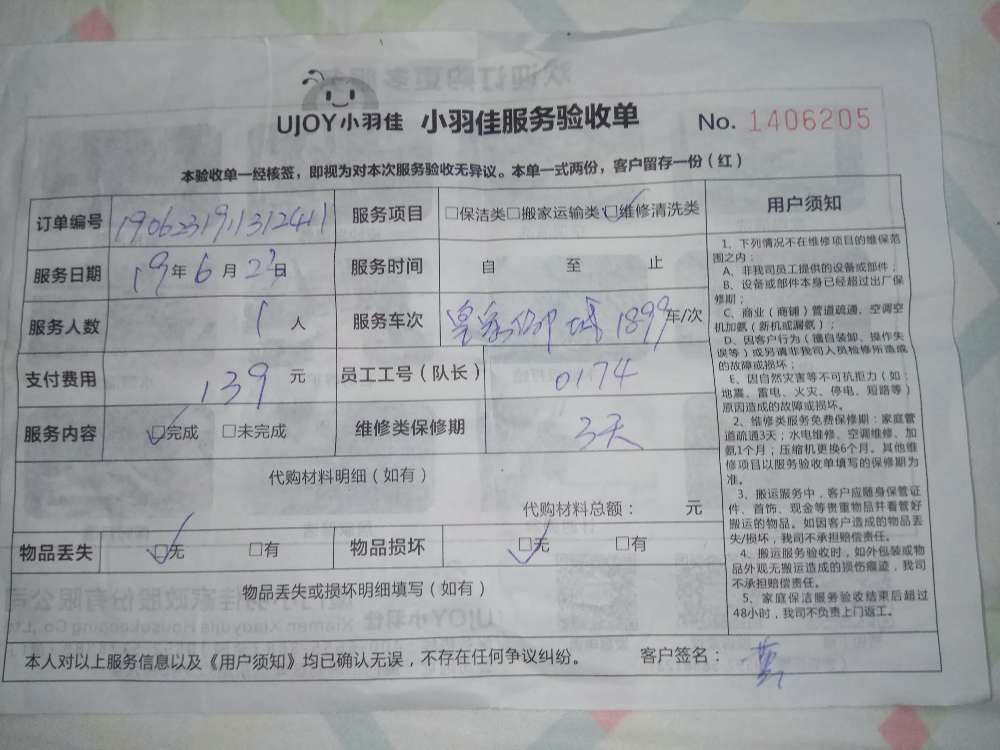 UJOY小羽佳 小羽佳服务验收单 No. 1406205
本验收单一经核签，即视为对本次服务验收无异议。本单一式两份，客户留存一份（红）
订单编号 190623191131244 服务项目 □保洁类□搬家运输类□维修清洗类
服务日期 19年6月23日 服务时间 自 至 止
服务人数 1 人 服务车次 1899年/次
支付费用 139 元 员工工号（队长） 0174
服务内容 □完成 □未完成 维修类保修期 3天
代购材料明细（如有）
代购材料总额： 元
物品丢失 □无 □有 物品损坏 □无 □有
物品丢失或损坏明细填写（如有）
本人对以上服务信息以及《用户须知》均已确认无误，不存在任何争议纠纷。 客户签名：
用户须知
1、下列情况不在维修项目的维保范
围之内：
A、非我司员工提供的设备或部件；
B、设备或部件本身已经超过出厂保
修期；
C、商业（商铺）管道疏通、空调空
机加氨（新机或漏氨）；
D、因客户行为（擅自装卸、操作失
误等）或另请非我司人员检修所造成
的故障或损坏；
E、因自然灾害等不可抗拒力（如：
地震、雷电、火灾、停电、短路等）
原因造成的故障或损坏。
2、维修类服务免费保修期：家庭管
道疏通3天；水电维修、空调维修、加
氨1个月；压缩机更换6个月。其他维
修项目以服务验收单填写的保修期为
准。
3、搬运服务中，客户应随身保管证
件、首饰、现金等贵重物品并看管好
搬运的物品。如因客户造成的物品丢
失/损坏，我司不承担赔偿责任。
4、搬运服务验收时，如外包装或物
品外观无搬运造成的损伤痕迹，我司
不承担赔偿责任。
5、家庭保洁服务验收结束后超过
48小时，我司不负责上门返工。